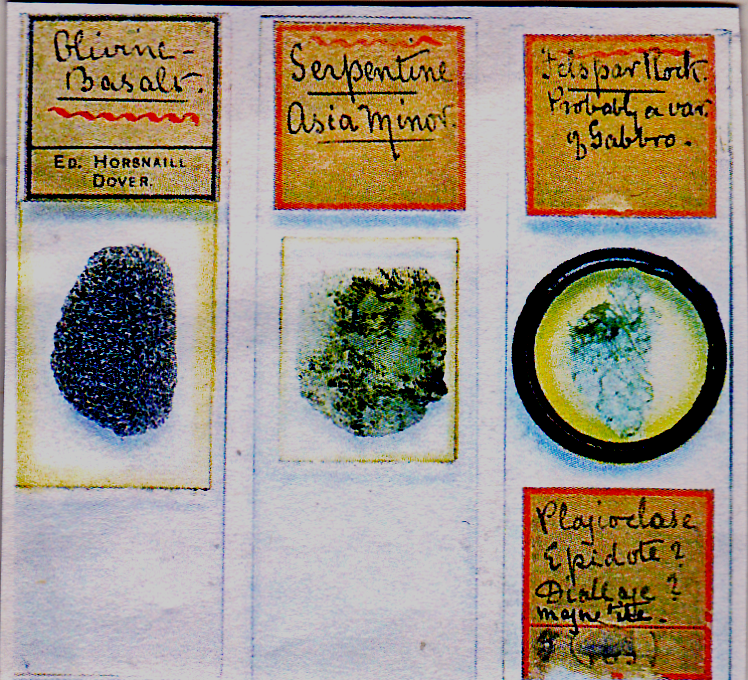 Olivine-
Basalt.
ED. HORSNAILL
DOVER.
Serpentine
Asia Minor.
Felspar Rock.
Probably a var.
of Gabbro.
Plagioclase
Epidote?
Diallage?
magnetite.